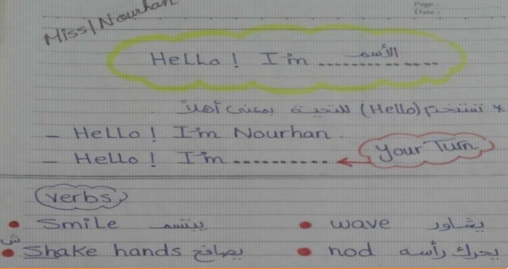 Page :
Date :
Miss/Nourhan
Hello! I'm الأسم ..............
* تستخدم (Hello) للتحية بمعنى أهلاً
- Hello! I'm Nourhan.
- Hello! I'm .......... Your Turn
verbs
• Smile يبتسم • wave يشاور
ش
• Shake hands يصافح • nod يحرك رأسه